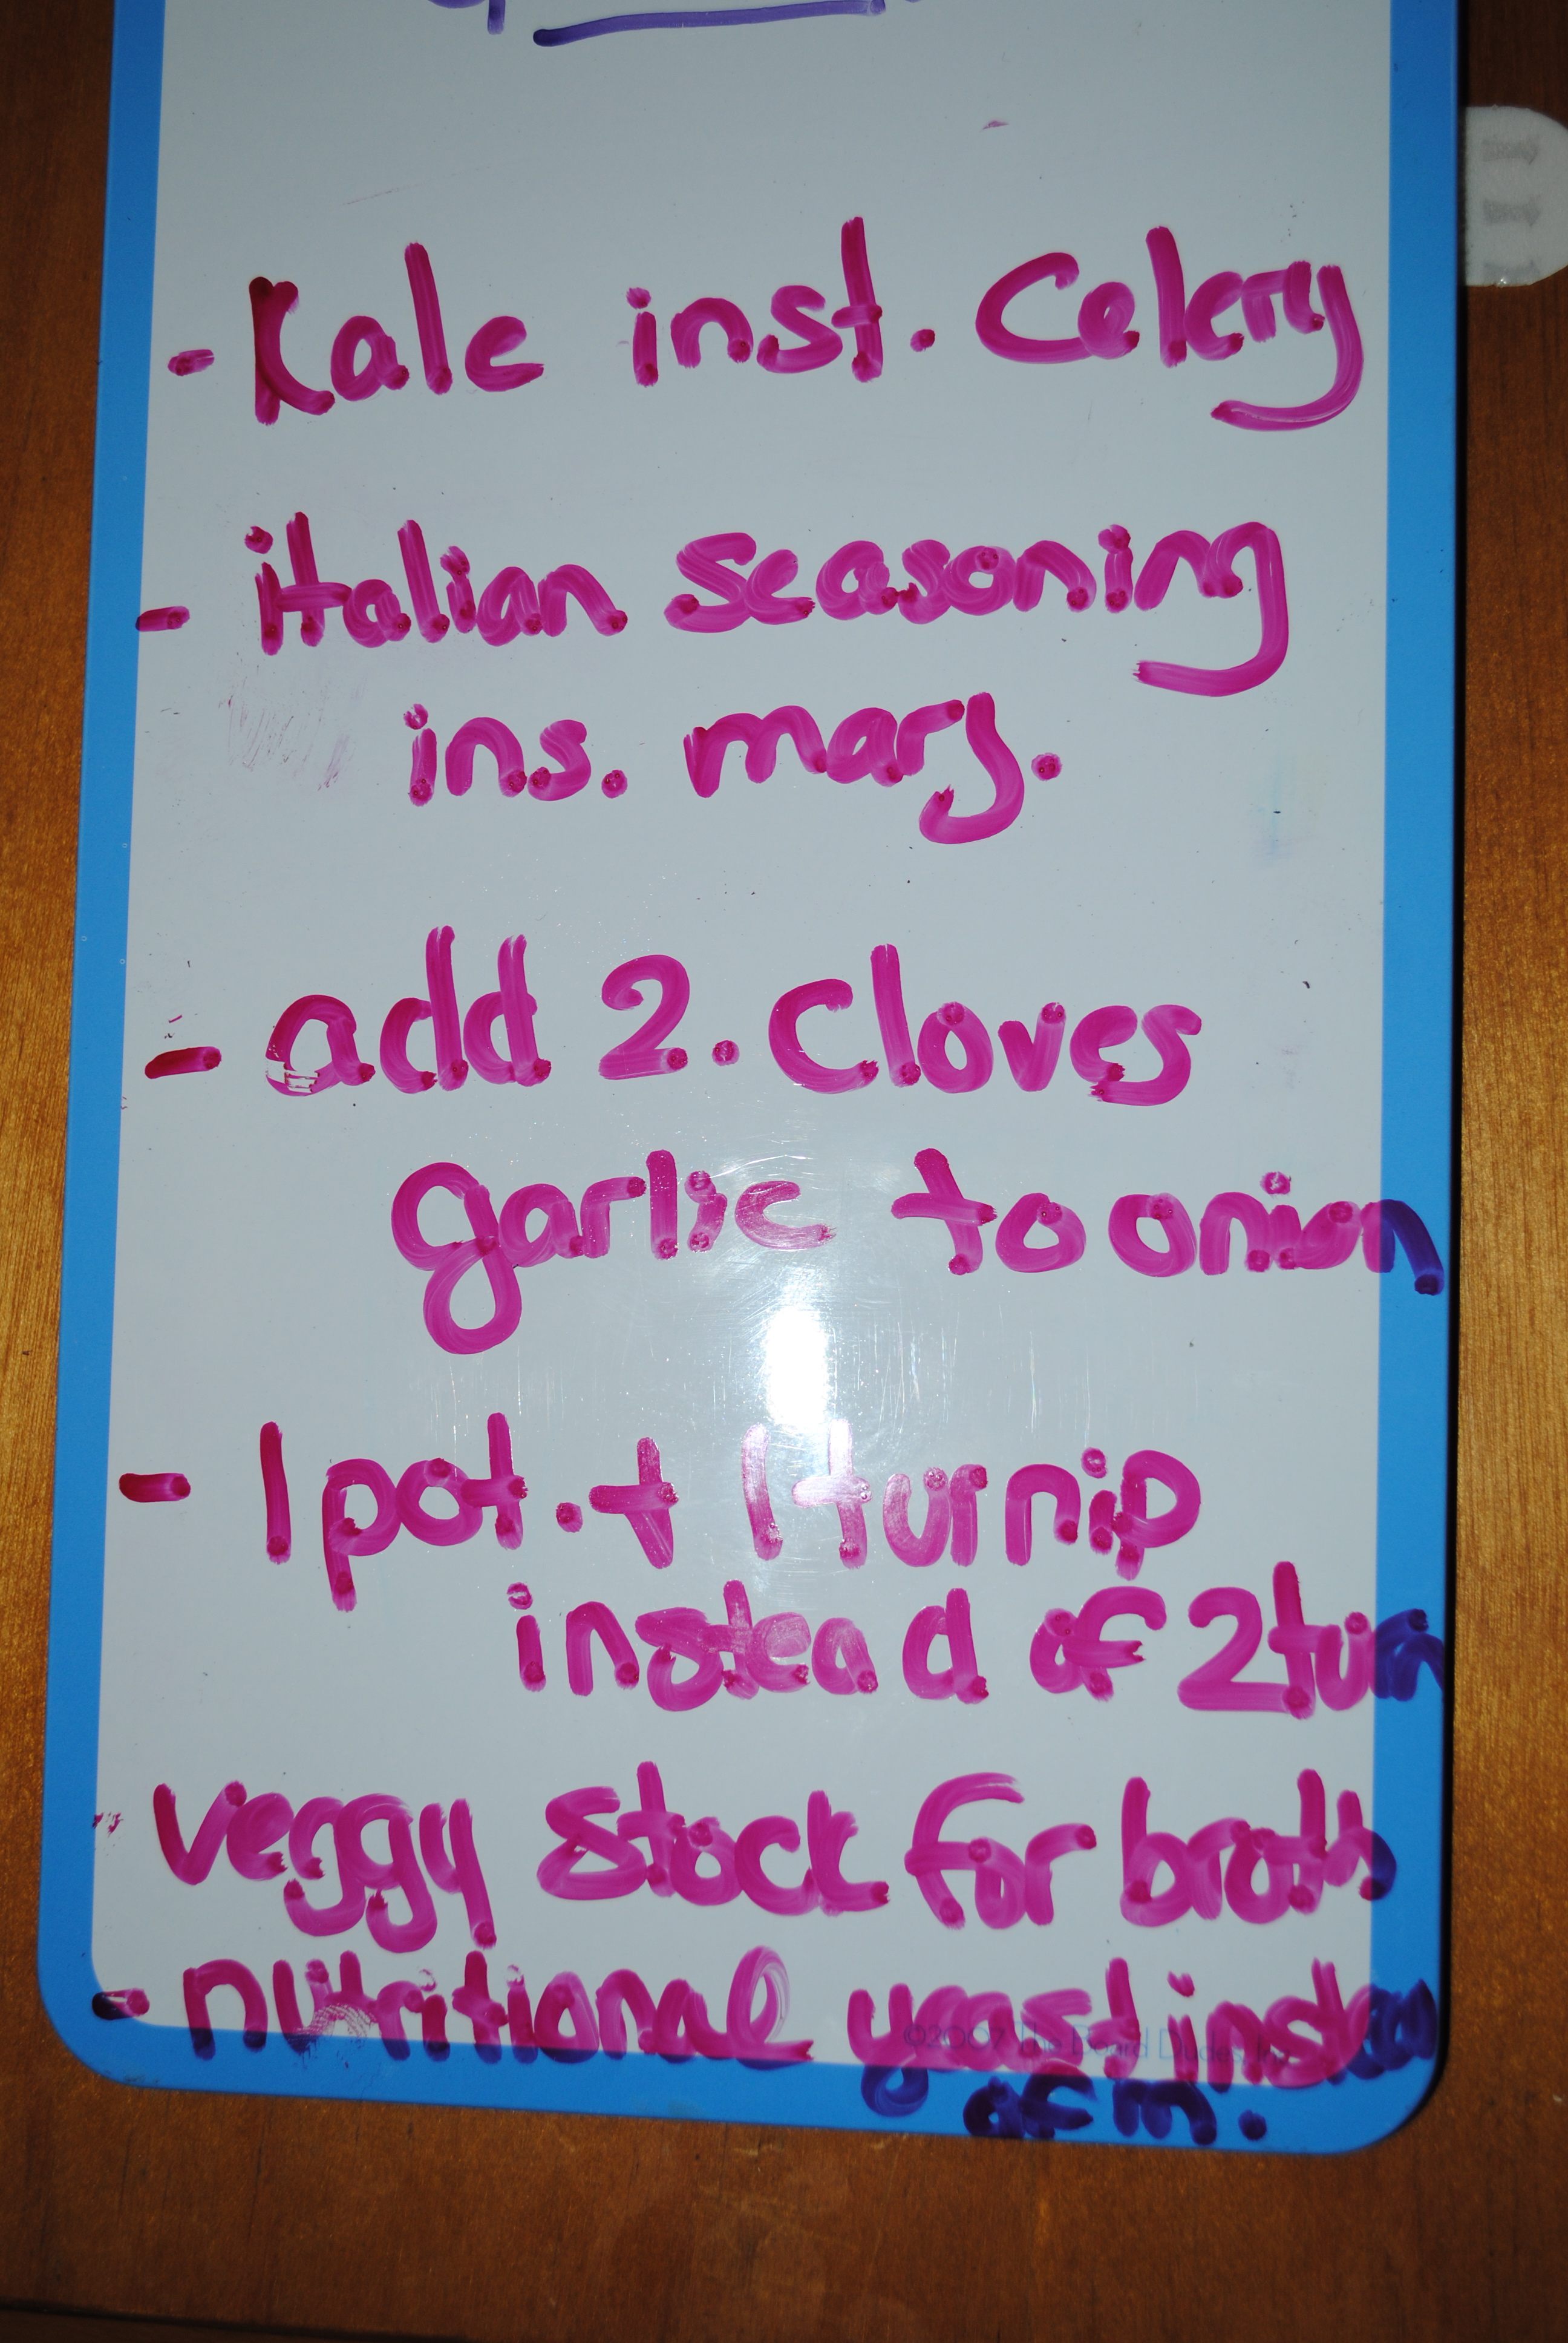 - Kale inst. Celery
- italian seasoning
ins. marj.
- add 2. cloves
garlic to onion
- 1 pot. + 1 turnip
instead of 2 turn
veggy stock for broth
- nutritional yeast instea
of m.
©2007 The Board Dudes, Inc.